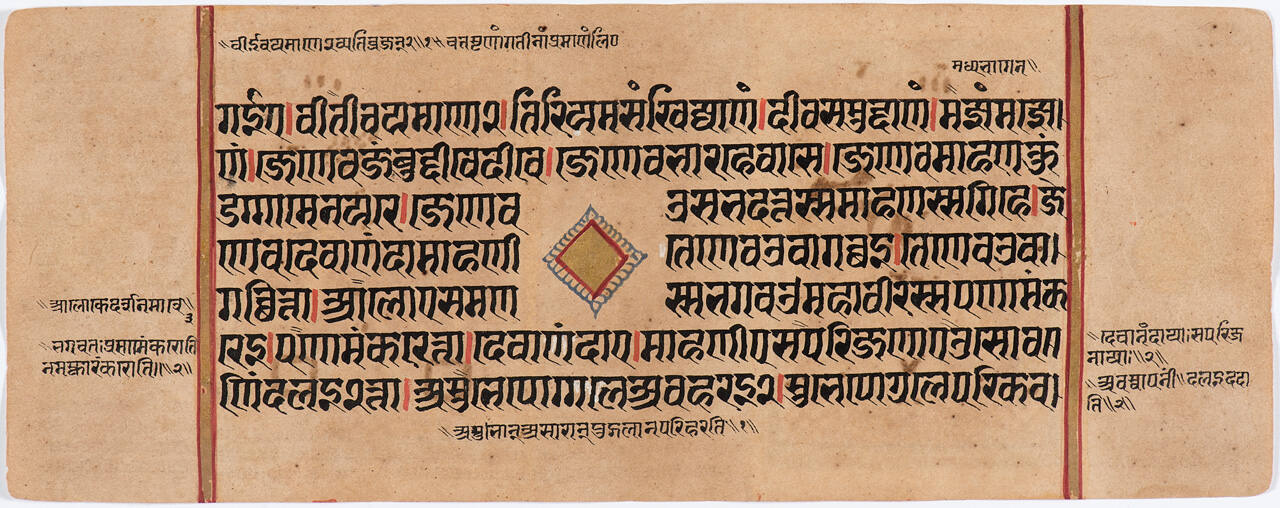 ॥वीईवयमाणे२ व्यतिव्रजन्२॥१॥
मध्यभागेन॥
गईए।वीतीवयमाणे२।तिरियमसंखिज्जाणं।दीवसमुद्दाणं।मज्झंमज्झे
णं।जेणेव जंबुद्दीवे दीवे।जेणेव भारहे वासे।जेणेव माहणकुं
डग्गामे नयरे।जेणेव उसभदत्तस्स माहणस्स गिहे।जे
णेव देवाणंदा माहणी तेणेव उवागच्छइ।तेणेव उवा
गच्छित्ता।आलोए समणस्स भगवओ महावीरस्स पणामं क
रेइ।पणामं करेत्ता।देवाणंदाए।माहणीए सपरिजणाए ओसोव
णिं दलइ२त्ता।असुभे पोग्गले अवहरइ२।सुभे पोग्गले पक्खिव
॥आलोके दर्शनमात्रे
॥भगवतः प्रणामं करेति
नमस्कारं करोति॥२॥
॥देवानंदायाः सपरिज
नायाः॥२॥
॥अवस्वापनी॥दलइ ददा
ति॥२॥
॥अशुभान् असारान् पुद्गलान् परिहरति॥१॥